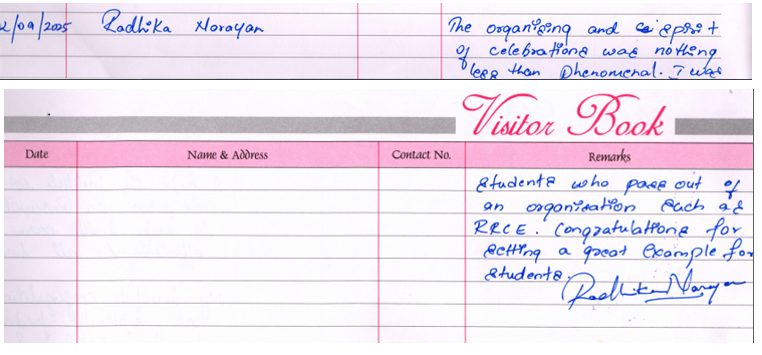 2/09/2005 Radhika Narayan The organising and spirit
of celebrations was nothing
less than phenomenal. I was
Visitor Book
Date Name & Address Contact No. Remarks
students who pass out of
an organisation such as
RRCE. Congratulations for
setting a great example for
students.
Radhika Narayan